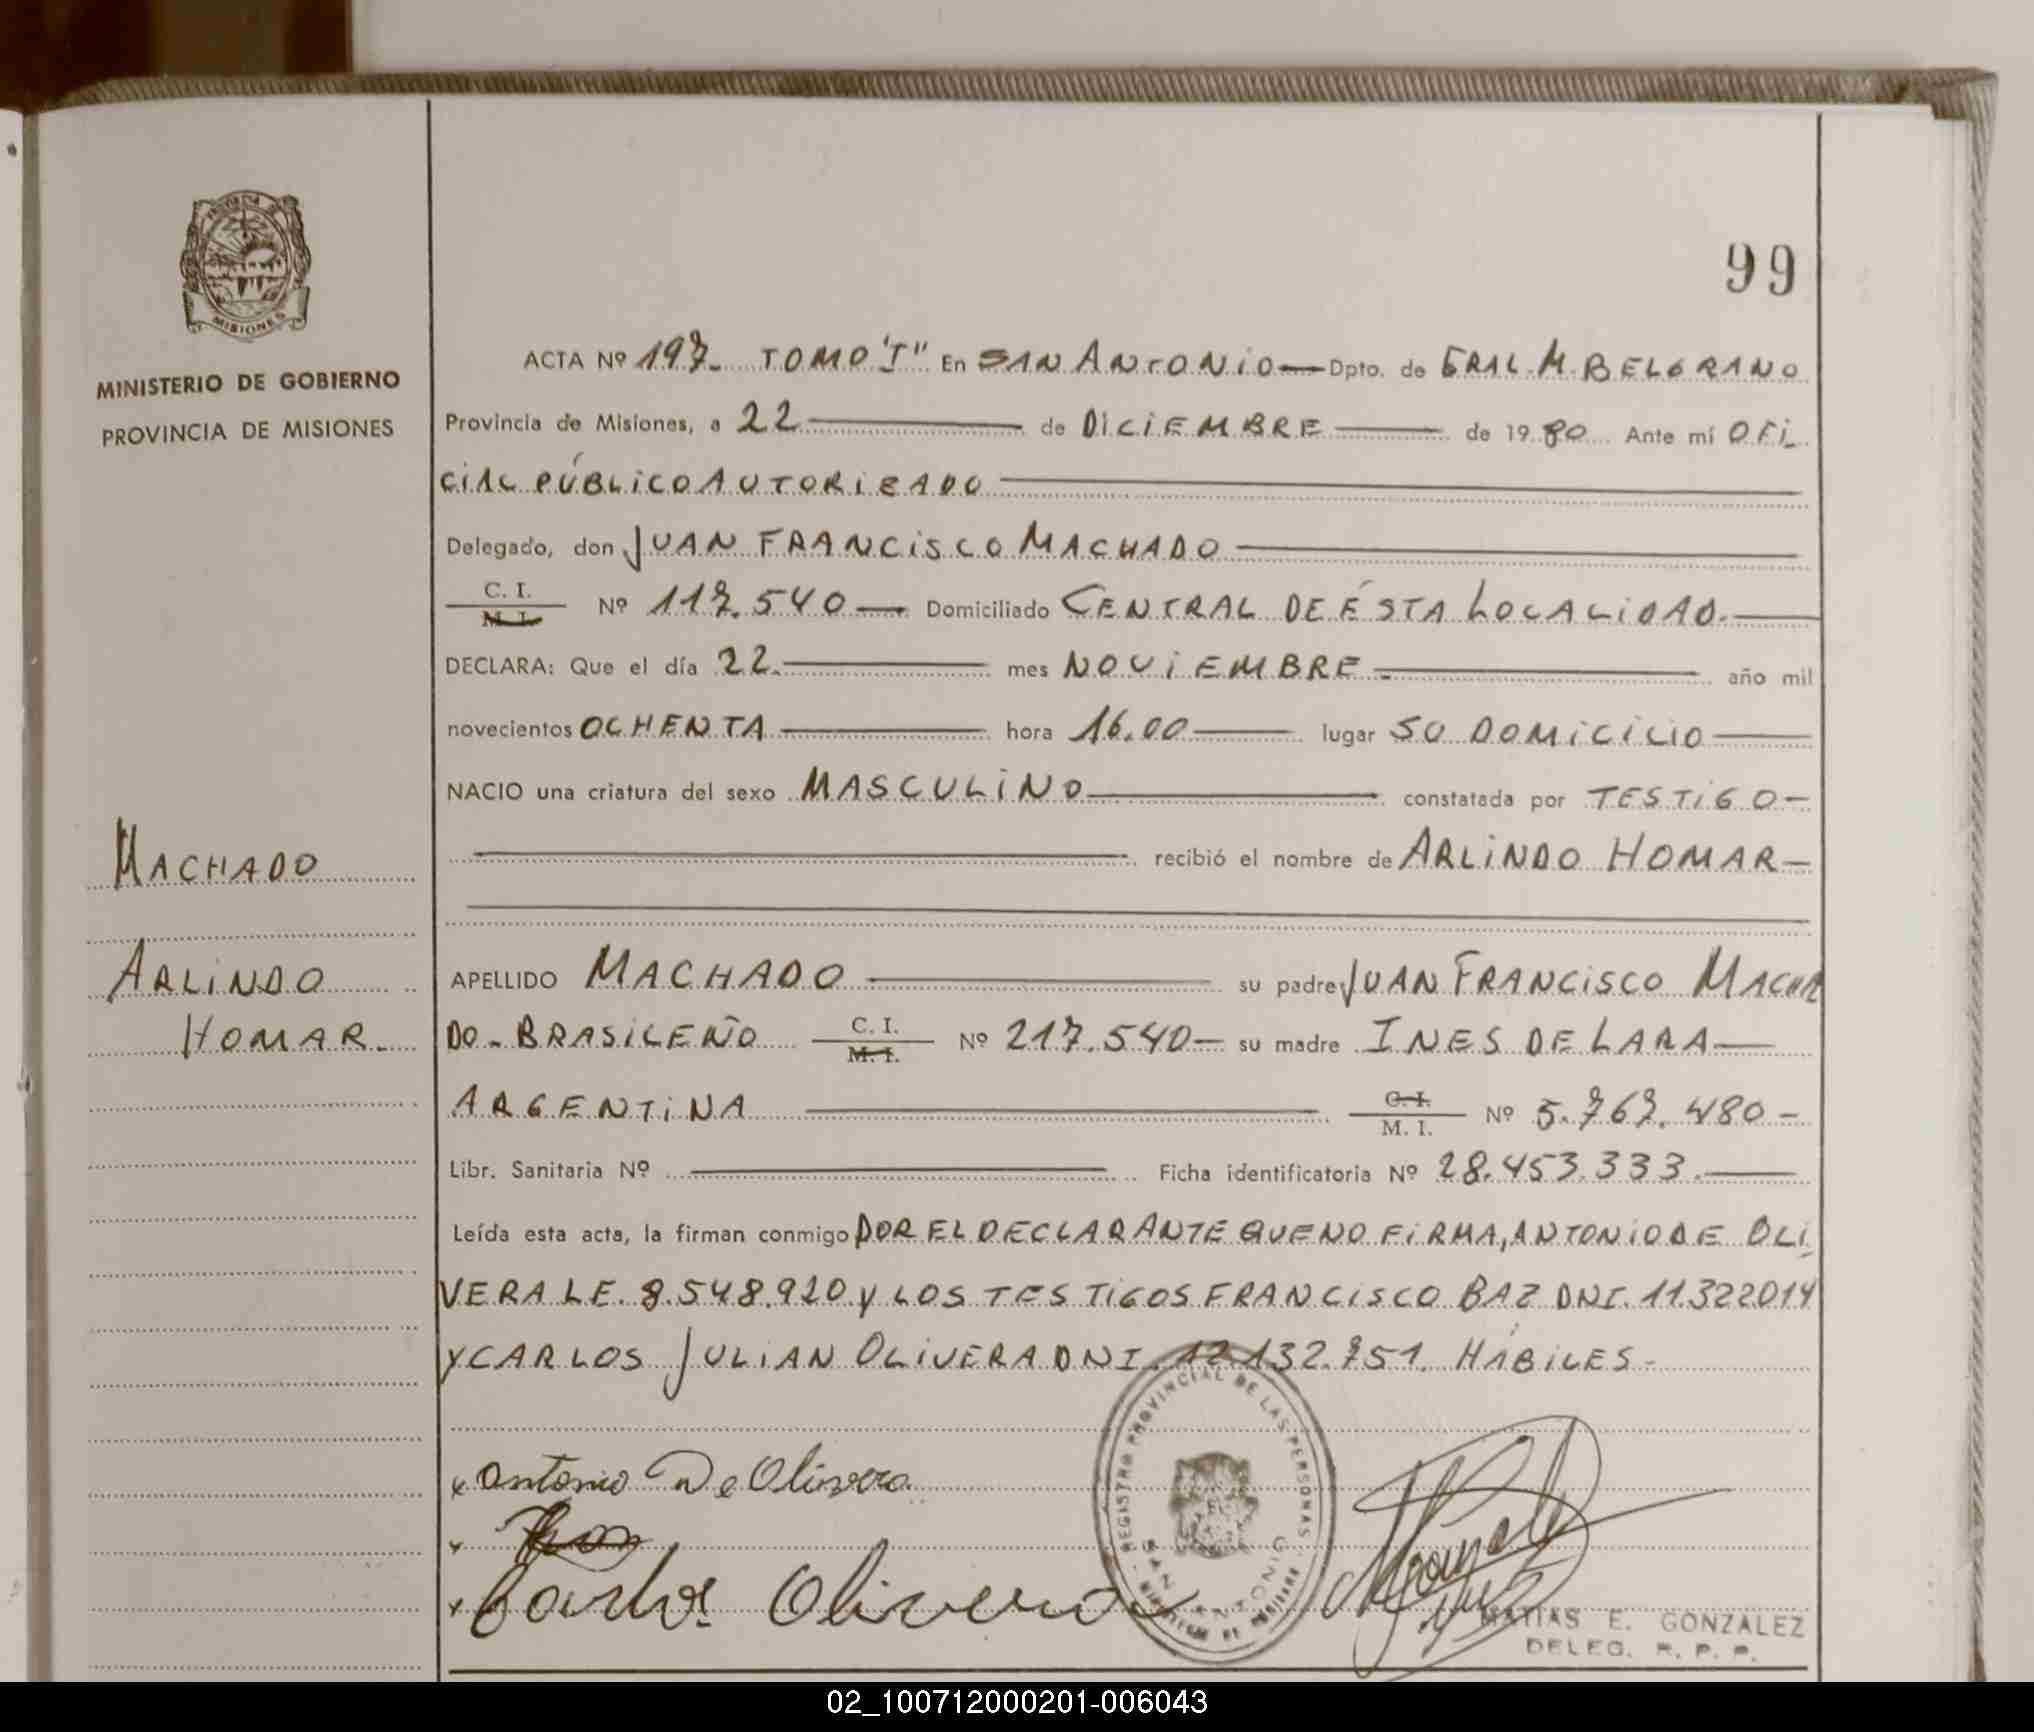 99
PROVINCIA DE
MISIONES
MINISTERIO DE GOBIERNO
PROVINCIA DE MISIONES
MACHADO
ARLINDO
HOMAR.
ACTA Nº 197. TOMO "I" En SAN ANTONIO Dpto. de GRAL. M. BELGRANO
Provincia de Misiones, a 22 de DICIEMBRE de 1980 Ante mí OFI
CIAL PÚBLICO AUTORIZADO
Delegado, don JUAN FRANCISCO MACHADO
C. I.
M. I. Nº 117.540 Domiciliado CENTRAL DE ÉSTA LOCALIDAD.
DECLARA: Que el día 22. mes NOVIEMBRE año mil
novecientos OCHENTA hora 16.00 lugar SU DOMICILIO
NACIO una criatura del sexo MASCULINO constatada por TESTIGO
recibió el nombre de ARLINDO HOMAR
APELLIDO MACHADO su padre JUAN FRANCISCO MACHA
DO. BRASILEÑO C. I. M. I. Nº 217.540 su madre INES DE LARA
ARGENTINA C. I. M. I. Nº 5.767.480
Libr. Sanitaria Nº Ficha identificatoria Nº 28.453.333.
Leída esta acta, la firman conmigo POR EL DECLARANTE QUE NO FIRMA, ANTONIO DE OLI
VERA L.E. 8.548.920 y LOS TESTIGOS FRANCISCO BAZ DNI. 11.322014
Y CARLOS JULIAN OLIVERA DNI. 12.132.751. HÁBILES
x Antonio De Olivera
x
x Carlos Olivera
REGISTRO PROVINCIAL DE LAS PERSONAS
SAN ANTONIO
MATIAS E. GONZALEZ
DELEG. R. P. P.
02_100712000201-006043